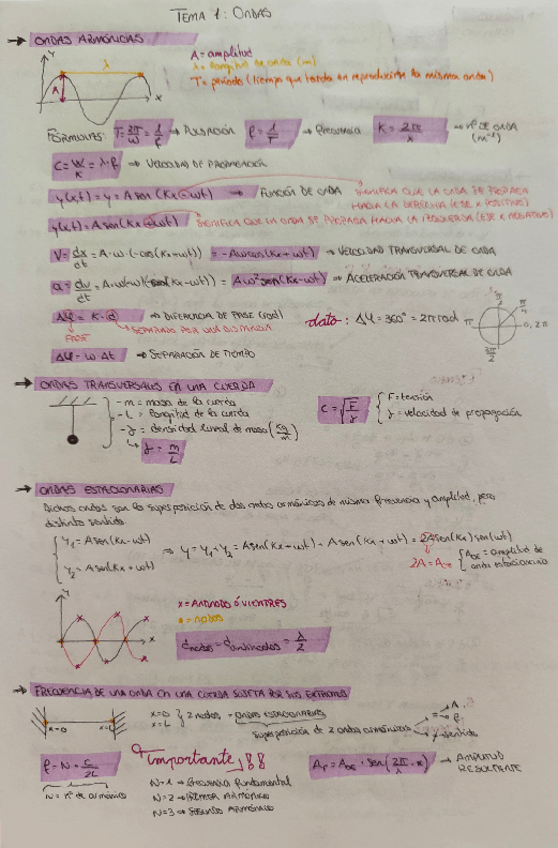 TEMA 1: ONDAS
→ ONDAS ARMÓNICAS
Y
A = amplitud
λ = longitud de onda (m)
T = periodo (tiempo que tarda en reproducirse la misma onda)
λ
A
X
FÓRMULAS: T = 2π/ω = 1/f → PULSACIÓN f = 1/T → Frecuencia K = 2π/λ → Nº DE ONDA (m⁻¹)
C = W/K = λ·f → VELOCIDAD DE PROPAGACIÓN
y(x,t) = y = A sen(Kx - ωt) → FUNCIÓN DE ONDA SIGNIFICA QUE LA ONDA SE PROPAGA HACIA LA DERECHA (EJE X POSITIVO)
y(x,t) = A sen(Kx + ωt) SIGNIFICA QUE LA ONDA SE PROPAGA HACIA LA IZQUIERDA (EJE X NEGATIVO)
V = dx/dt = A·ω·(-cos(Kx+ωt)) = -Aωcos(Kx+ωt) → VELOCIDAD TRANSVERSAL DE ONDA
= Aω²sen(Kx-ωt) → ACELERACIÓN TRANSVERSAL DE ONDA
Δφ = K·d → DIFERENCIA DE FASE (rad) dato: Δφ = 360° = 2π rad
FASE SEPARADO POR UNA DISTANCIA
π 0, 2π 3π/2
Δφ = ω Δt → SEPARACIÓN DE TIEMPO
→ ONDAS TRANSVERSALES EN UNA CUERDA
- m = masa de la cuerda
- L = longitud de la cuerda
- γ = densidad lineal de masa (Kg/m)
↳ γ = m/L
C = √(F/γ)
F = tensión
γ = velocidad de propagación
→ ONDAS ESTACIONARIAS
Dichas ondas son la superposición de dos ondas armónicas de misma frecuencia y amplitud, pero
distinto sentido
Y₁ = A sen(Kx - ωt)
Y₂ = A sen(Kx + ωt)
⇒ Y = Y₁ + Y₂ = A sen(Kx - ωt) + A sen(Kx + ωt) = 2A sen(Kx) sen(ωt)
2A = Aoe
Aoe = amplitud de onda estacionaria
Y
X
x = ANTINODO Ó VIENTRES
• = nodos
dnodos = dantinodos = λ/2
→ FRECUENCIA DE UNA ONDA EN UNA CUERDA SUJETA POR SUS EXTREMOS
x=0 x=L
x=0
x=L } 2 nodos = ONDAS ESTACIONARIAS
superposición de 2 ondas armónicas
= A
= f
≠ sentido
f = N · C/2L
N = nº de armónico
Importante!!
N=1 → Frecuencia fundamental
N=2 → PRIMER ARMÓNICO
N=3 → SEGUNDO ARMÓNICO
Ar = Aoe · sen(2π/λ · x) → AMPLITUD RESULTANTE